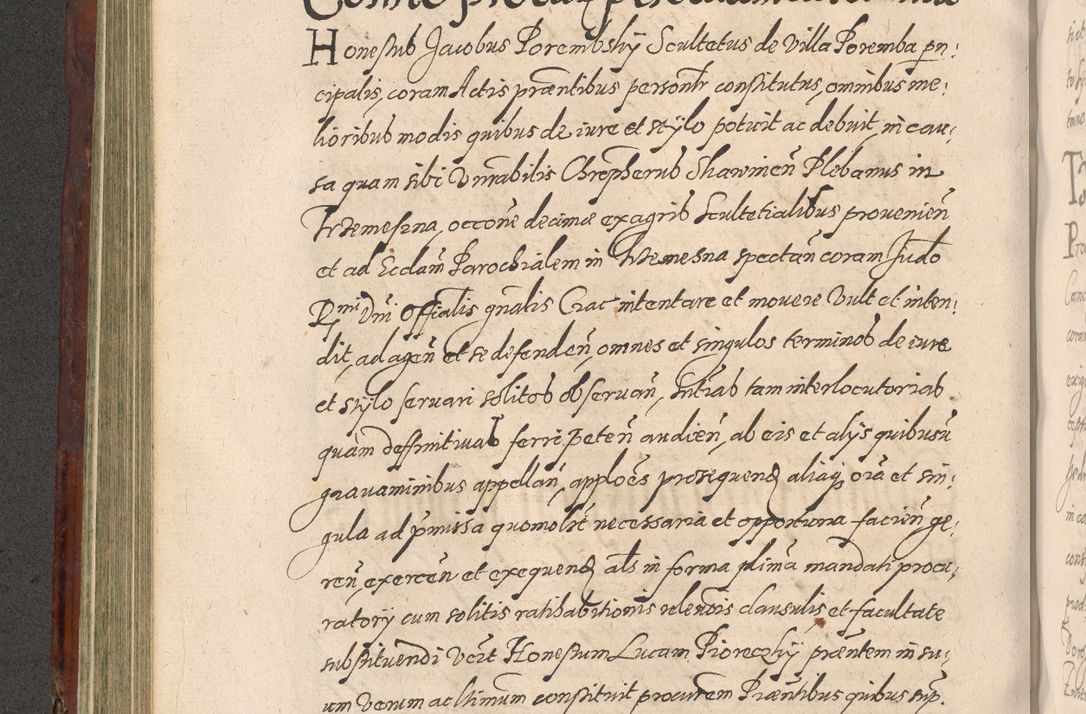 Honestus Jacobus Porembskÿ Scultetus de Villa Poremba prin:
cipalis, coram Actis præntibus personlr constitutus, omnibus me:
lioribus modis quibus de iure et stÿlo potuit ac debuit, in cau:
sa quam sibi Vnrabilis Chrophorus Skawineñ Plebanus in
Krzemeszna, occoñe decimæ ex agris Scultetialibus provenieñ
et ad Eccliam Parochialem in Krzemesna spectañ coram Judo
Rmi Dni Offcialis gñalis Crac intentare et mouere Vult et inten:
dit, ad ageñ et se defendeñ, omnes et singulos terminos de iure
et stÿlo seruari solitos obseruañ, sntias tam interlocutorias
quàm deffinitiuas ferri peteñ audieñ, ab eis et alÿs quibusuis
grauaminibus appellañ, applões prosequend aliaq oĩa et sin:
gula ad pmissa quomolit necessaria et opportuna facieñ ge:
reñ, exerceñ et exequend als in forma plima mandati procu:
ratorÿ cum solitis ratihabitionis relenois clausulis et facultate
substituendi Vcut Honestum Lucam Pioreczkÿ præntem in su:
um Verum ac ltimum constituit procurem Præntibus quibus sup.